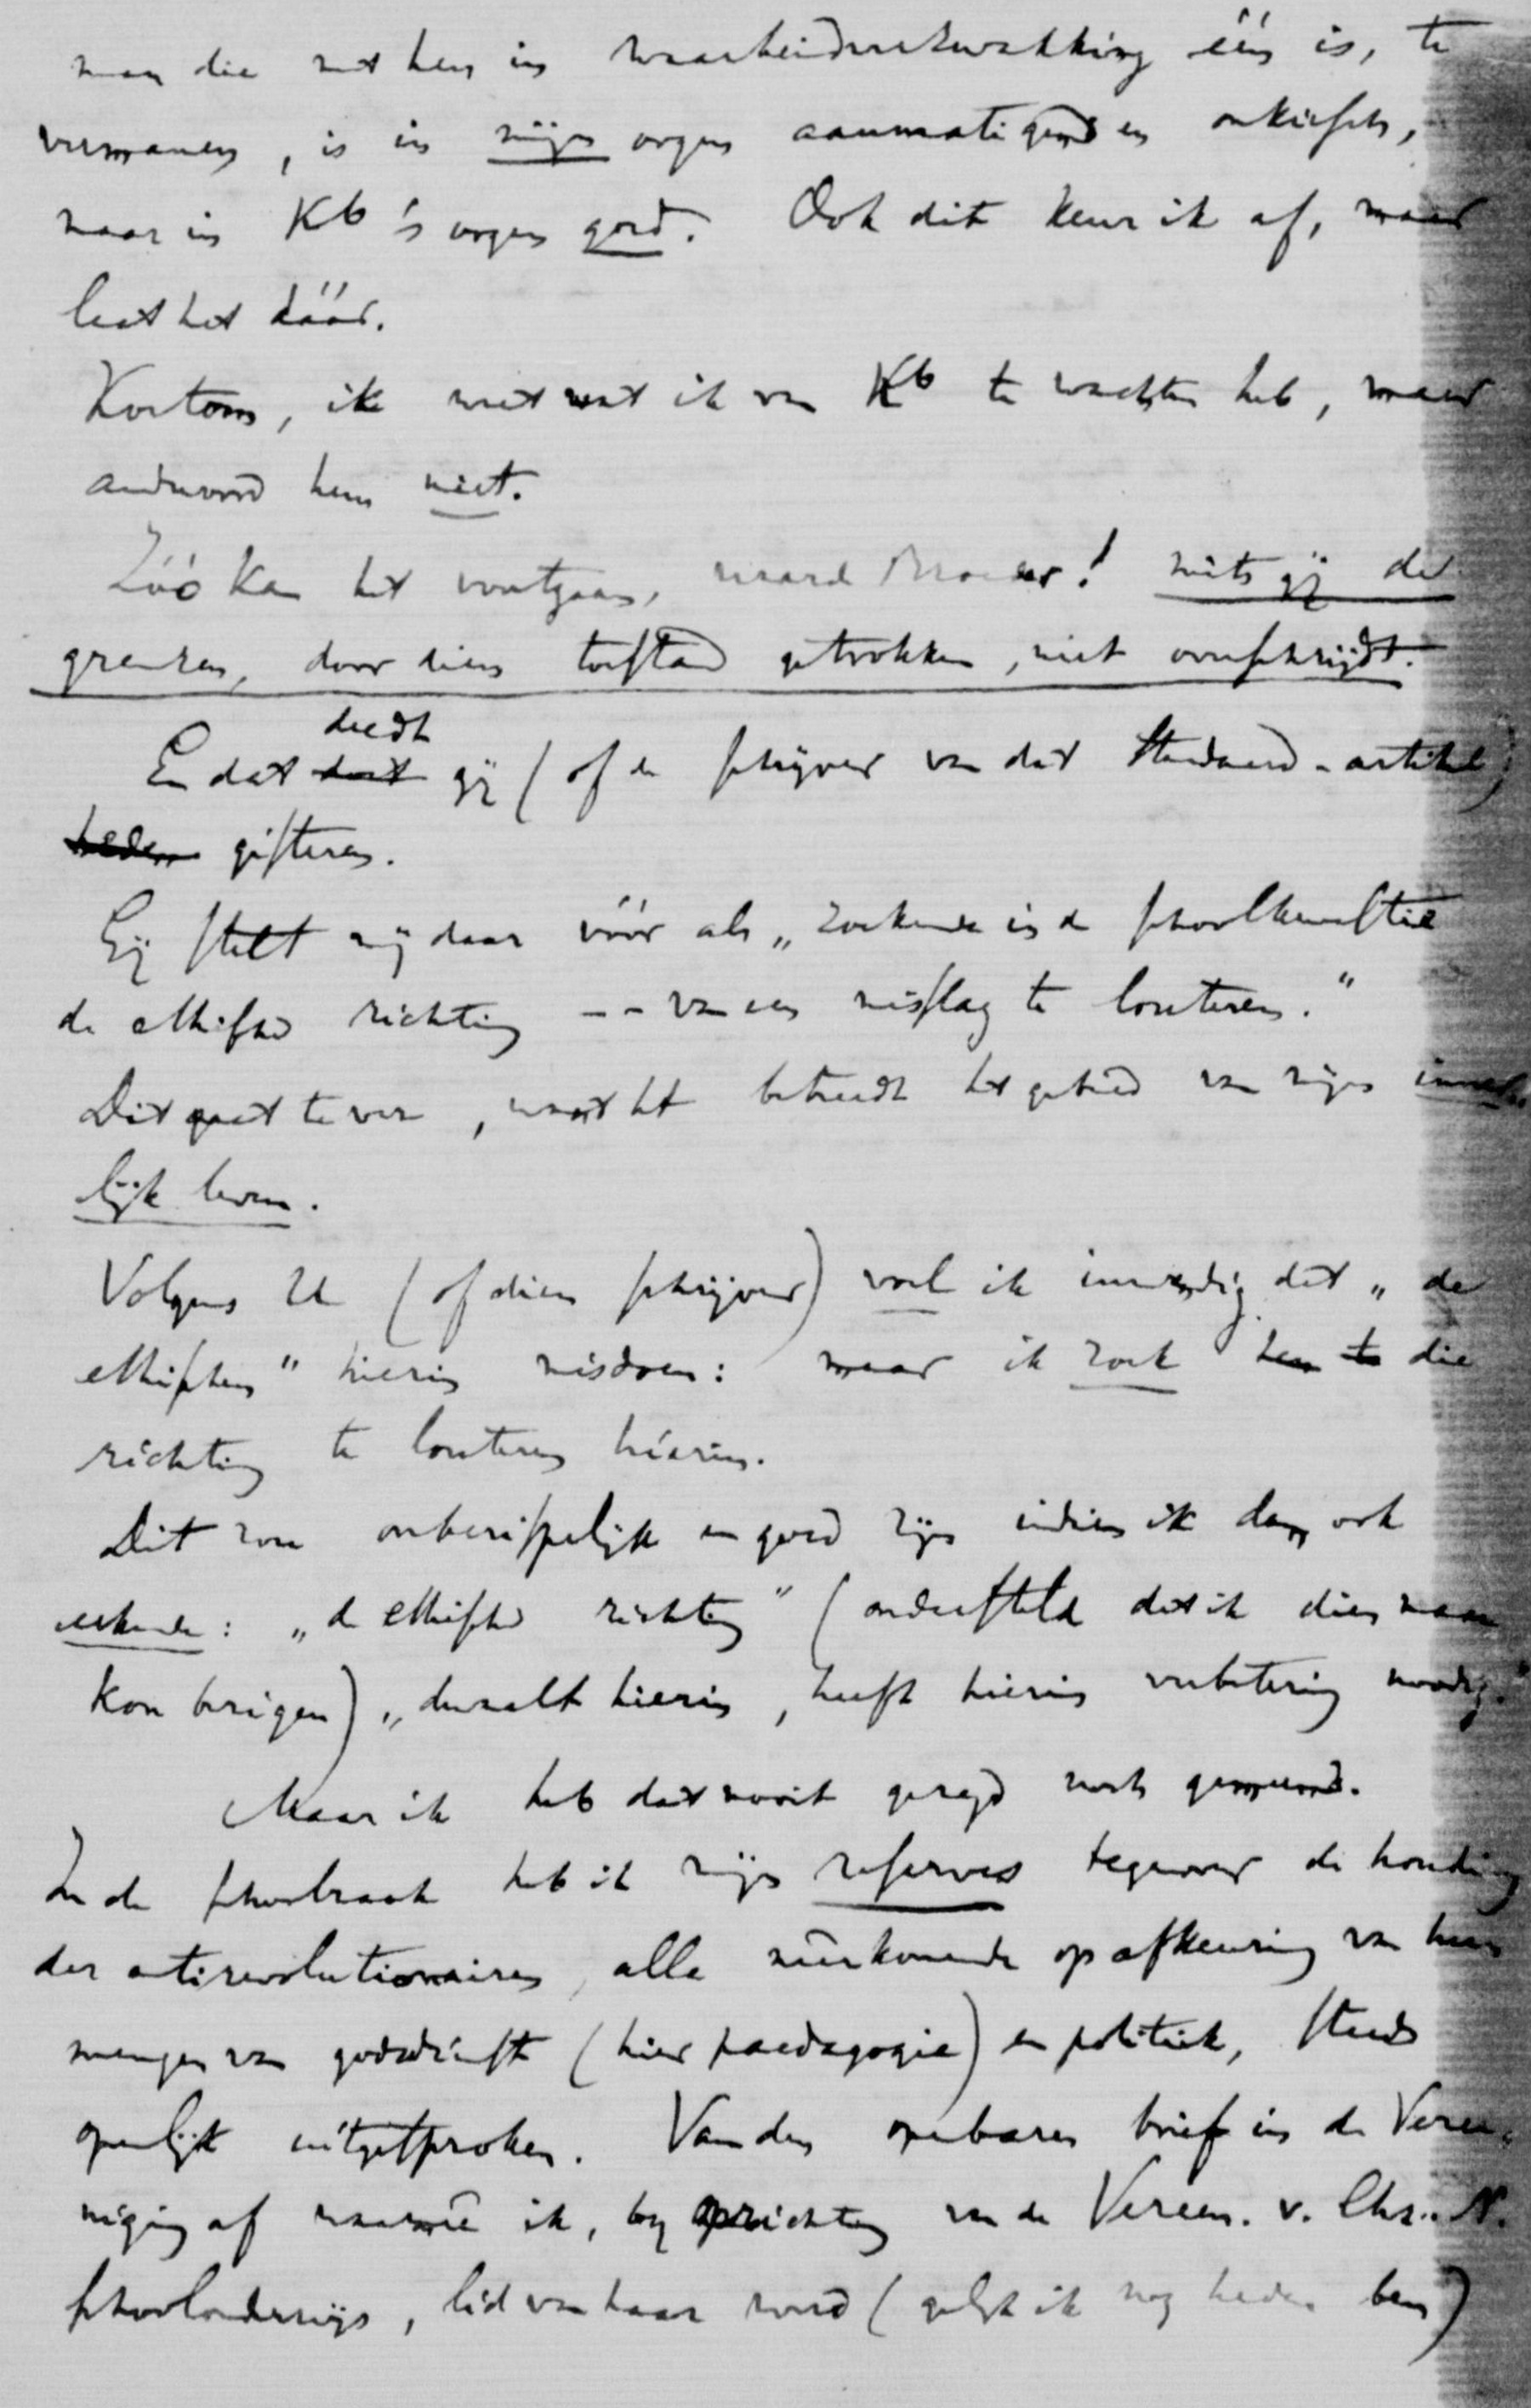 man die met hem in waarheidsontwikkeling één is, te
vermanen, is in mijn oogen aanmatigend en onkiesch,
maar in Kb's oogen goed. Ook dit keur ik af, maar
laat het dáár.
Kortom, ik weet wat ik van Kb te wachten heb, maar
andwoord hem niet.
Zóó kan het voortgaan, waarde Broeder! mits gij de
grenzen, door dien toestand getrokken, niet overschrijdt.
En dat deedt gij (of de schrijver van dat Standaard-artikel)
gisteren.
Gij stelt mij daar vóór als „zoekende in de schoolkwestie
de ethische richting -- van een misslag te louteren."
Dit gaat te ver, want het betreedt het gebied van mijn inner-
lijk leven.
Volgens U (of dien schrijver) voel ik inwendig dat „de
ethischen" hierin misdoen: maar ik zoek die
richting te louteren hierin.
Dit zou onberispelijk en goed zijn indien ik dan ook
erkende: „de ethische richting" (ondersteld dat ik dien naam
kon bezigen) „dwaalt hierin, heeft hierin verbetering noodig."
Maar ik heb dat nooit gezegd noch gemeend.
In de schoolzaak heb ik mijn reserves tegenover de houding
der antirevolutionairen, alle neerkomende op afkeuring van hun
mengen van godsdienst (hier paedagogie) en politiek, steeds
openlijk uitgesproken. Van den openbaren brief in de Veree-
niging af waarmeê ik, bij oprichting van de Vereen. v. Chr. N.
schoolonderwijs, lid van haar werd (gelijk ik nog heden ben)